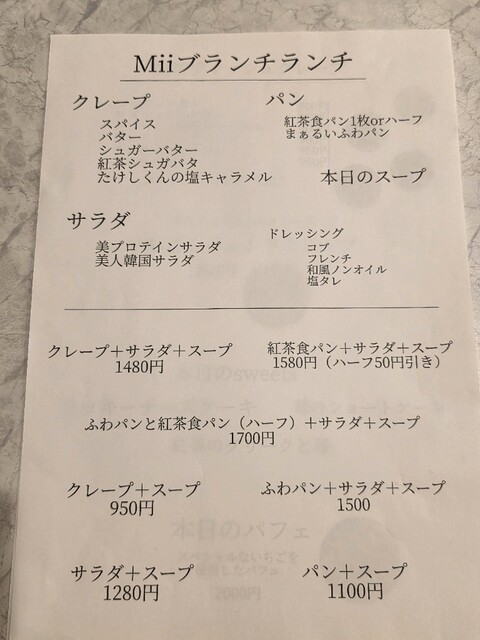 Miiブランチランチ
クレープ
スパイス
バター
シュガーバター
紅茶シュガバタ
たけしくんの塩キャラメル
パン
紅茶食パン1枚orハーフ
まぁるいふわパン
本日のスープ
サラダ
美プロテインサラダ
美人韓国サラダ
ドレッシング
コブ
フレンチ
和風ノンオイル
塩タレ
クレープ＋サラダ＋スープ
1480円
紅茶食パン＋サラダ＋スープ
1580円（ハーフ50円引き）
ふわパンと紅茶食パン（ハーフ）＋サラダ＋スープ
1700円
クレープ＋スープ
950円
ふわパン＋サラダ＋スープ
1500
サラダ＋スープ
1280円
パン＋スープ
1100円
本日のsweets
本日のパフェ
2000円